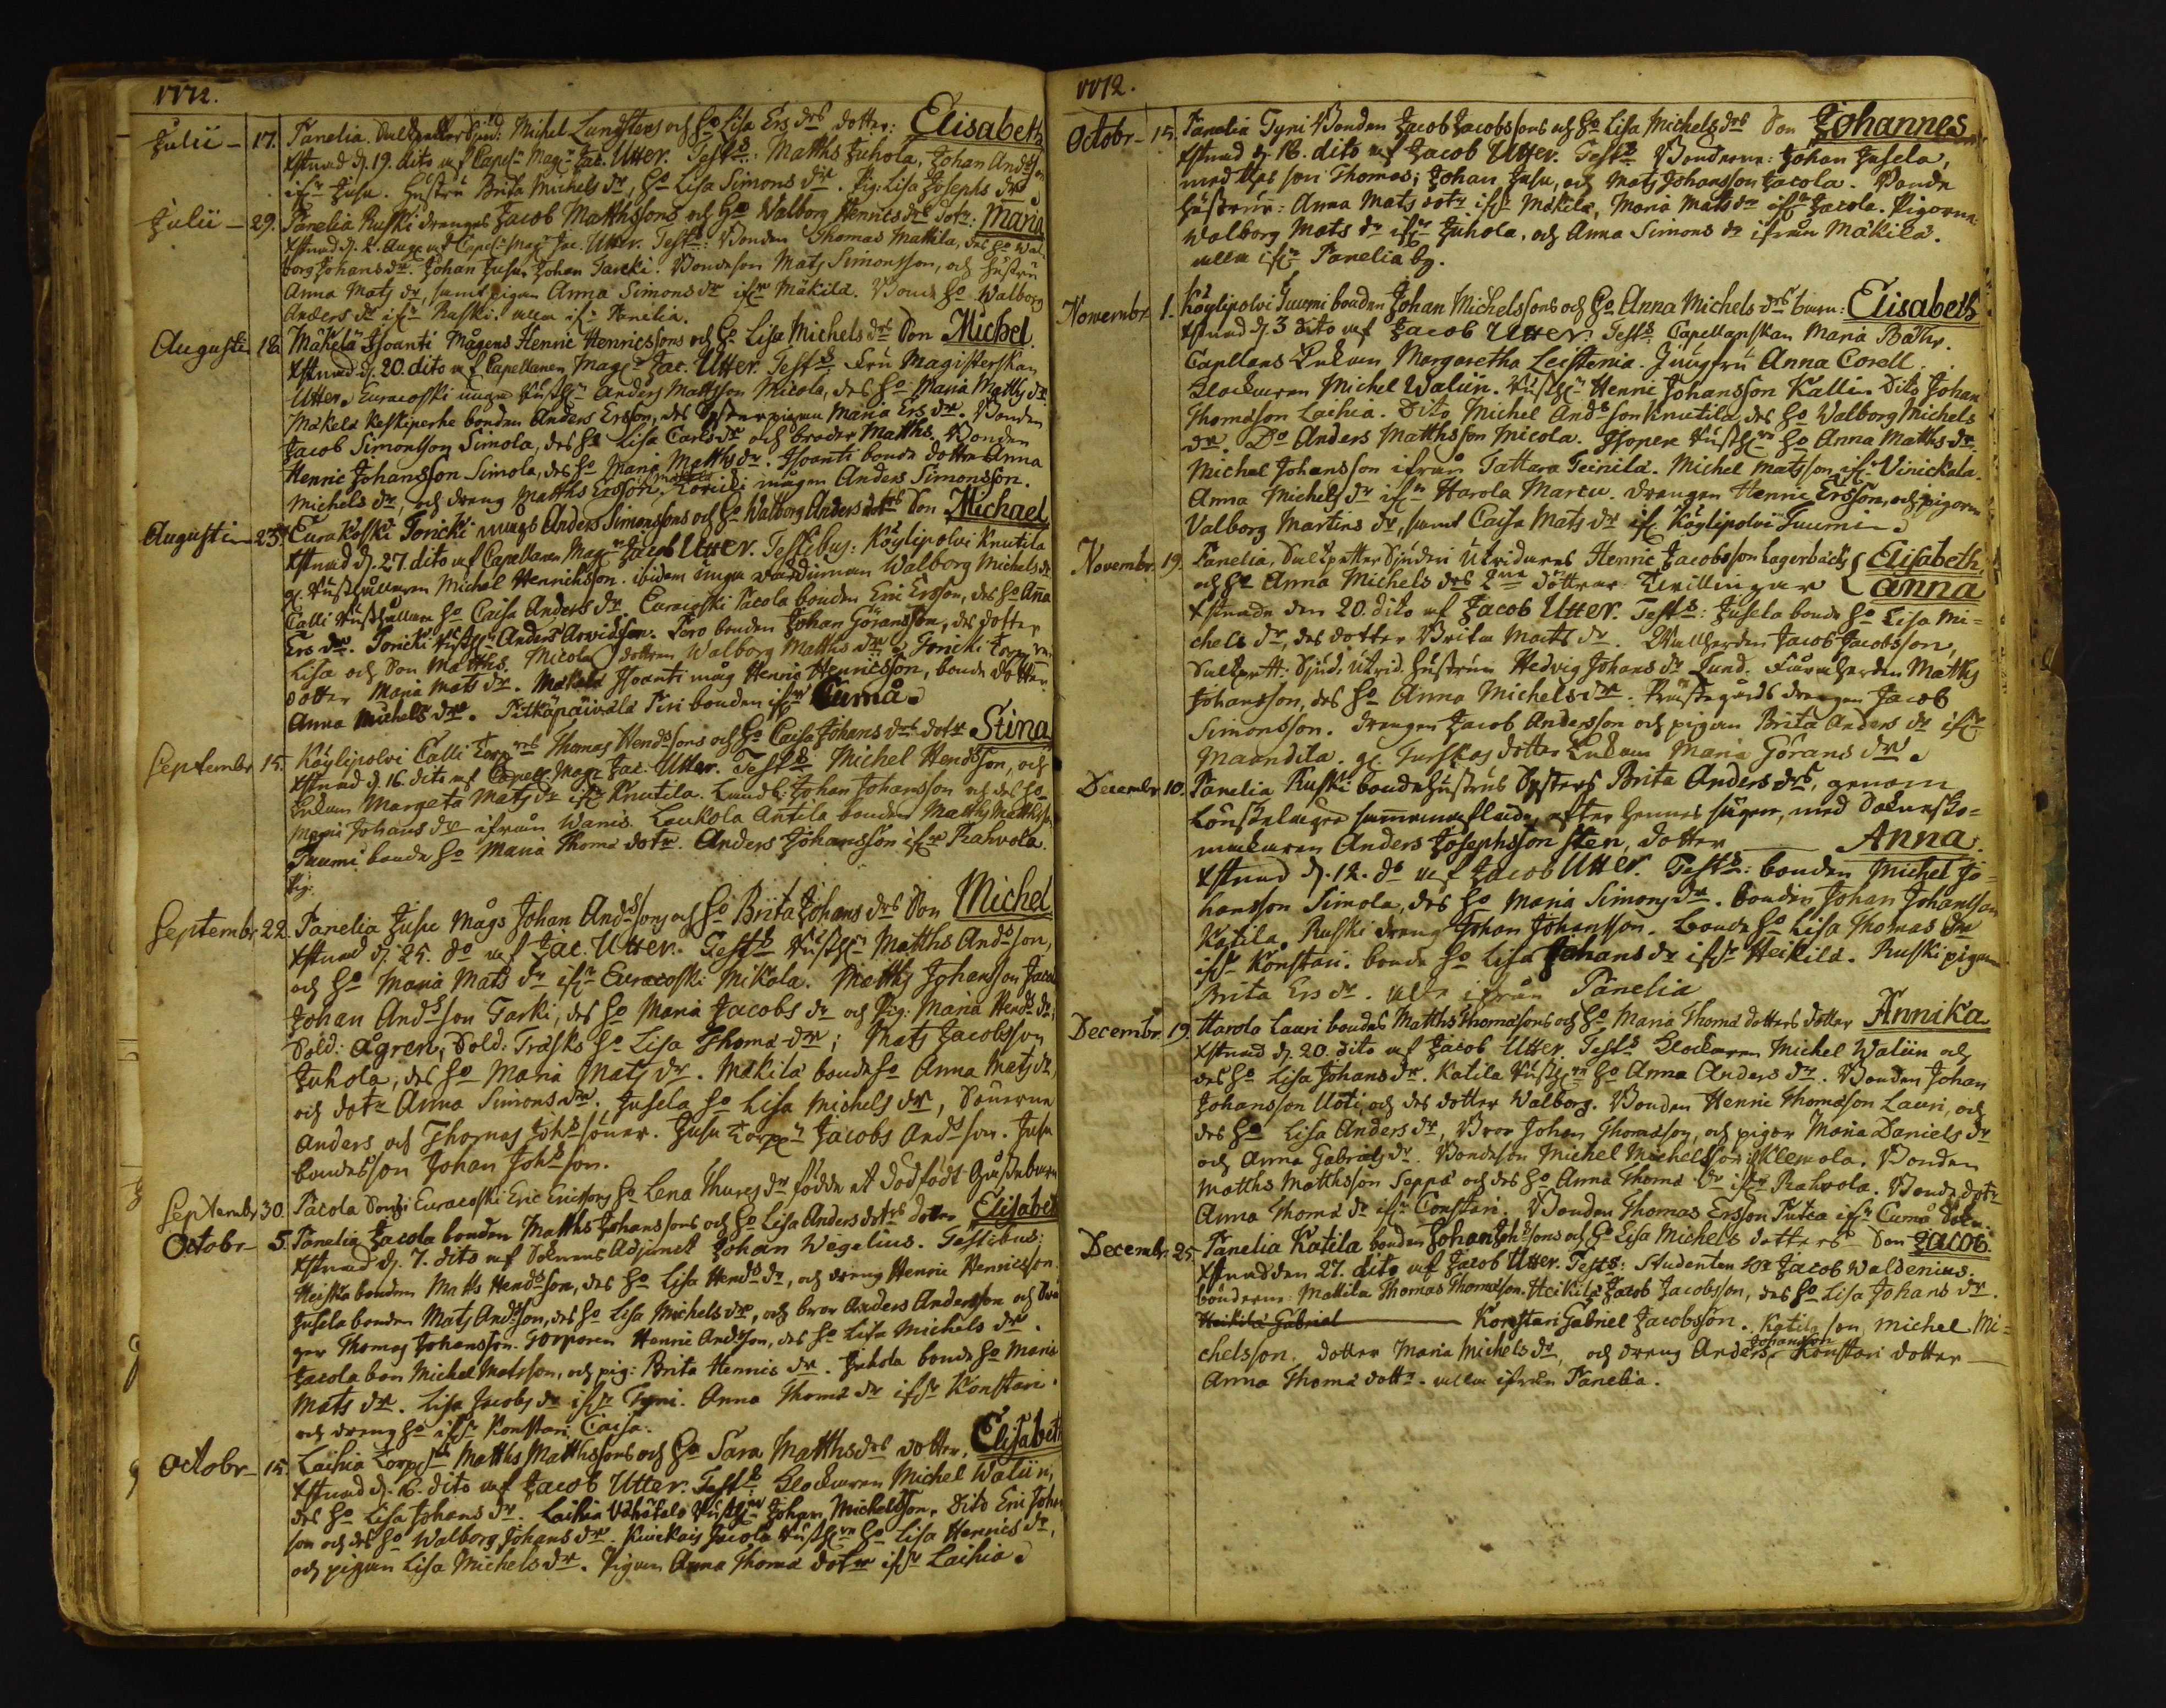 1772.
Julii - 17. Panelia. Michel Lundstens och ho Lisa Ers drs dotter: Elisabeth
Xstnad d. 19. dito af Capeln Magr Jac. Utter. Tests: Matths Juhola, Johan Andsson
ifrn Jusu. Hustru Brita Michels dr, ho Lisa Simons dr. Pig: Lisa Josephs dr
Julii - 29. Panelia Ruski drängs Jacob Matthssons och Ho Walborg Henrics drs dotr: Maria
Xstnad d. 2. Aug. af Capeln Magr Jac. Utter. Tests: Bonden Thomas Mattila, des ho Wal-
borg Johans dr. Johan Jusu, Johan Tarcki. Bondeson Mats Simonsson, och hustru
Anna Mats dr, samt pigan Anna Simons dr ifrn Mäkilä. Bond ho Walborg
Anders dr ifrn Ruski. alla ifrn Panelia.
Augusti 18. Mäkelä Isoanti Mågens Henric Henricssons och Ho Lisa Michels drs Son Michel.
Xstnad d. 20. dito af Capellanen Magr Jac. Utter. Tests Fru Magisterskan
Utter. Euracoski unga Anders Mattsson Micola, des ho Maria Matths dr.
Mäkelä Keskiperhe bonden Anders Ersson, des Systerpigan Maria Ers dr. Bonden
Jacob Simonsson Simola, des ho Lisa Carls dr och broder Matths. Bonden
Henric Johansson Simola, des ho Maria Matths dr. Isoanti bonde dotter Anna
Michels dr, och dreng Matths Ersson. Toricki mågen Anders Simonsson.
Augusti - 23. Eurakoski Toricki mågs Anders Simonssons och ho Walborg Anders dotrs Son Michael
Xstnad d. 27. dito af Capellanen Magr Jacob Utter. Testibus: Köylipolvi Knutila
Michel Henricksson. ibidem unga Walborg Michels dr.
Calli ho Caisa Anders dr. Euracoski Pacola bonden Eric Ersson, des ho Anna
Ers dr. Toricki Anders Arvidsson. Pero bonden Johan Göransson, des dotter
Lisa och Son Matths. Micola dottren Walborg Matths dr. Toricki
dotter Maria Mats dr. Mäkelä Isoanti måg Henric Henricsson, bonde dotter
Anna Michels dr. Pitkäpäivälä Piri bonden ifrn Cumå.
Septembr. 15. Köylipolvi Calli Thomas Hendssons och Ho Caisa Johans drs dotr Stina
Xstnad d. 16. dito af Capell. Magr Jac. Utter. Tests Michel Hendsson, och
Enkan Margeta Mats dr ifrn Knutila. Lundb: Johan Johansson och des ho
Maria Johans dr ifrån Wanis. Laukola Antila bonden Matths Matthsson
Tuumi bonde ho Maria Thomä dotr. Anders Johansson ifrn Rahvola.
Pig:
Septembr. 22. Panelia Jusu Mågs Johan Andssons och ho Brita Johans drs Son Michel
Xstnad d. 25. do af Jac. Utter. Tests Matths Andsson,
och ho Maria Mats dr ifrn Euracoski Mikola. Matths Johansson
Johan Andsson Tarki, des ho Maria Jacobs dr och Pig: Maria Hends dr,
Sold: Ågren, Sold: Träsks ho Lisa Thomä dr; Mats Jacobsson
Juhola, des ho Maria Mats dr. Mäkilä bonde ho Anna Mats dr,
och dotr Anna Simons dr. Jusela ho Lisa Michels dr, Sönerna
Anders och Thomas Johssöner. Jusu Jacobs Andsson. Jusu
bondesson Johan Johsson.
Septembr. 30. Pacola Euracoski Eric Ericssons ho Lena Thures dr födde et dödfödt
Octobr - 5. Panelia Jacola bonden Matths Johanssons och Ho Lisa Anders dotrs dotter Elisabet
Xstnad d. 7. dito af Socknens Adjunct Johan Wegelius. Testibus:
Heiska bonden Matts Hendsson, des ho Lisa Hends dr, och dreng Henric Henricsson
Jusela bonden Mats Andsson, des ho Lisa Michels dr, och bror Anders Andersson och drän-
gen Thomas Johansson. Torparen Henric Andsson, des ho Lisa Michels dr.
Jacola bon Michel Matsson, och pig: Brita Henrics dr. Juhola bonde ho Maria
Mats dr. Lisa Jacobs dr ifrn Tyni. Anna Thomä dr ifrn Konstari.
och dreng ho ifrn Konstari, Caisa.
Octobr. 15. Laihia Matths Matthssons och Ho Sara Matths drs dotter, Elisabeth
Xstnad d. 16. dito af Jacob Utter. Tests: Klockaren Michel Waliin,
des ho Lisa Johans dr. Laihia Johan Michelsson. Dito Eric Johan
son och des ho Walborg Johans dr. Jacola ho Lisa Henrics dr,
och pigan Lisa Michels dr. Pigan Anna Thomä dotr ifrn Laihia.
1772.
Octobr - 15. Panelia Tyni Bonden Jacob Jacobssons och ho Lisa Michels drs Son Johannes
Xstnad d. 18. dito af Jacob Utter. Tests Bönderna: Johan Jusela,
med des son Thomas; Johan Jusu, och Mats Johansson Jacola. Bonde
hustrur: Anna Mats dotr ifrn Mäkilä, Maria Mats dr ifrn Jacola. Pigorna
Walborg Mats dr ifrn Juhola, och Anna Simons dr ifrån Mäkilä.
alla ifrn Panelia by.
Novembr. 1. Köylipolvi Tuumi bonden Johan Michelssons och Ho Anna Michels drs barn: Elisabeth
Xstnad d. 3 dito af Jacob Utter. Tests Capellanskan Maria Bähr.
Capellans Enkan Margaretha Leistenia. Jungfru Anna Corell.
Klockaren Michel Waliin. Henric Johansson Kalli. Dito Johan
Thomasson Laihia. Dito Michel Andsson Knutila, des ho Walborg Michels
dr. Do Anders Matthsson Micola. ho Anna Matths dr.
Michel Johansson ifrån Tattara Teinilä. Michel Matsson, ifrn Vinickala.
Anna Michels dr ifrn Harola Marcu. Drengen Henric Ersson, och pigorna
Valborg Martins dr, samt Caisa Mats dr ifr. Köylipolvi Tuumi.
Novembr. 19. Panelia, Saltpetter Sjuderi Utridares Henric Jacobsson Lagerbäcks { Elisabeth,
och Ho Anna Michels drs 2ne döttrar Tvillingar { Anna
Xstnade den 20. dito af Jacob Utter. Tests: Jusela bonde ho Lisa Mi-
chels dr, des dotter Brita Matts dr. Wallherden Jacob Jacobsson,
Saltpett: Sjud: Utrid: hustrun Hedvig Johans dr Lund. Fåraherden Matths
Johansson, des ho Anna Michels dr. Prästegårds drengen Jacob
Simonsson. drengen Jacob Andersson och pigan Brita Anders dr ifrn
Maandila. gl. dotter Enkan Maria Görans dr.
Decembr 10. Panelia Ruski bondehustrus Systers Brita Anders drs, genom
Lönskaläger sammanaflade, efter hennes sägen, med Sockensko-
makaren Anders Josephsson Sten, dotter Anna.
Xstnad d. 12. do af Jacob Utter. Tests: bonden Michel Jo-
hansson Simola, des ho Maria Simons dr. bonden Johan Johansson
Katila. Ruski dreng Johan Johansson. Bonde ho Lisa Thomas dr
ifrn Konstari. bonde ho Lisa Johans dr ifrn Heikilä. Ruski pigan
Brita Ers dr. alla ifrån Panelia
Decembr. 19. Harola Lauri bondes Matths Thomassons och Ho Maria Thomä dotters dotter Annika
Xstnad d. 20. dito af Jacob Utter. Tests Klockaren Michel Waliin och
des ho Lisa Johans dr. Katila ho Anna Anders dr. Bonden Johan
Johansson Uoti, och des dotter Walborg. Bonden Henric Thomasson Lauri, och
des ho Lisa Anders dr, Bror Johan Thomasson, och pigor Maria Daniels dr
och Anna Gabriels dr. Bondeson Michel Michelsson Klemola. Bonden
Matths Matthsson Seppä och des ho Anna Thomä dr ifrn Rahvola. Bonde dotr
Anna Thomä dr ifrn Constari. Bonden Thomas Ersson Putca ifrn Cumå Sokn.
Decembr. 25. Panelia Katila bonden Johan Johssons och Ho Lisa Michels dotters Son Jacob.
Xstnad den 27. dito af Jacob Utter. Tests: Studenten Hr Jacob Waldenius.
bönderne: Mattila Thomas Thomasson. Heikilä Jacob Jacobsson, des ho Lisa Johans dr.
Heikilä Gabriel Konstari Gabriel Jacobsson. Katila son, Michel Mi-
chelsson. dotter Maria Michels dr, och dreng Anders Johansson Konstari dotter
Anna Thomä dottr. alla ifrån Panelia.